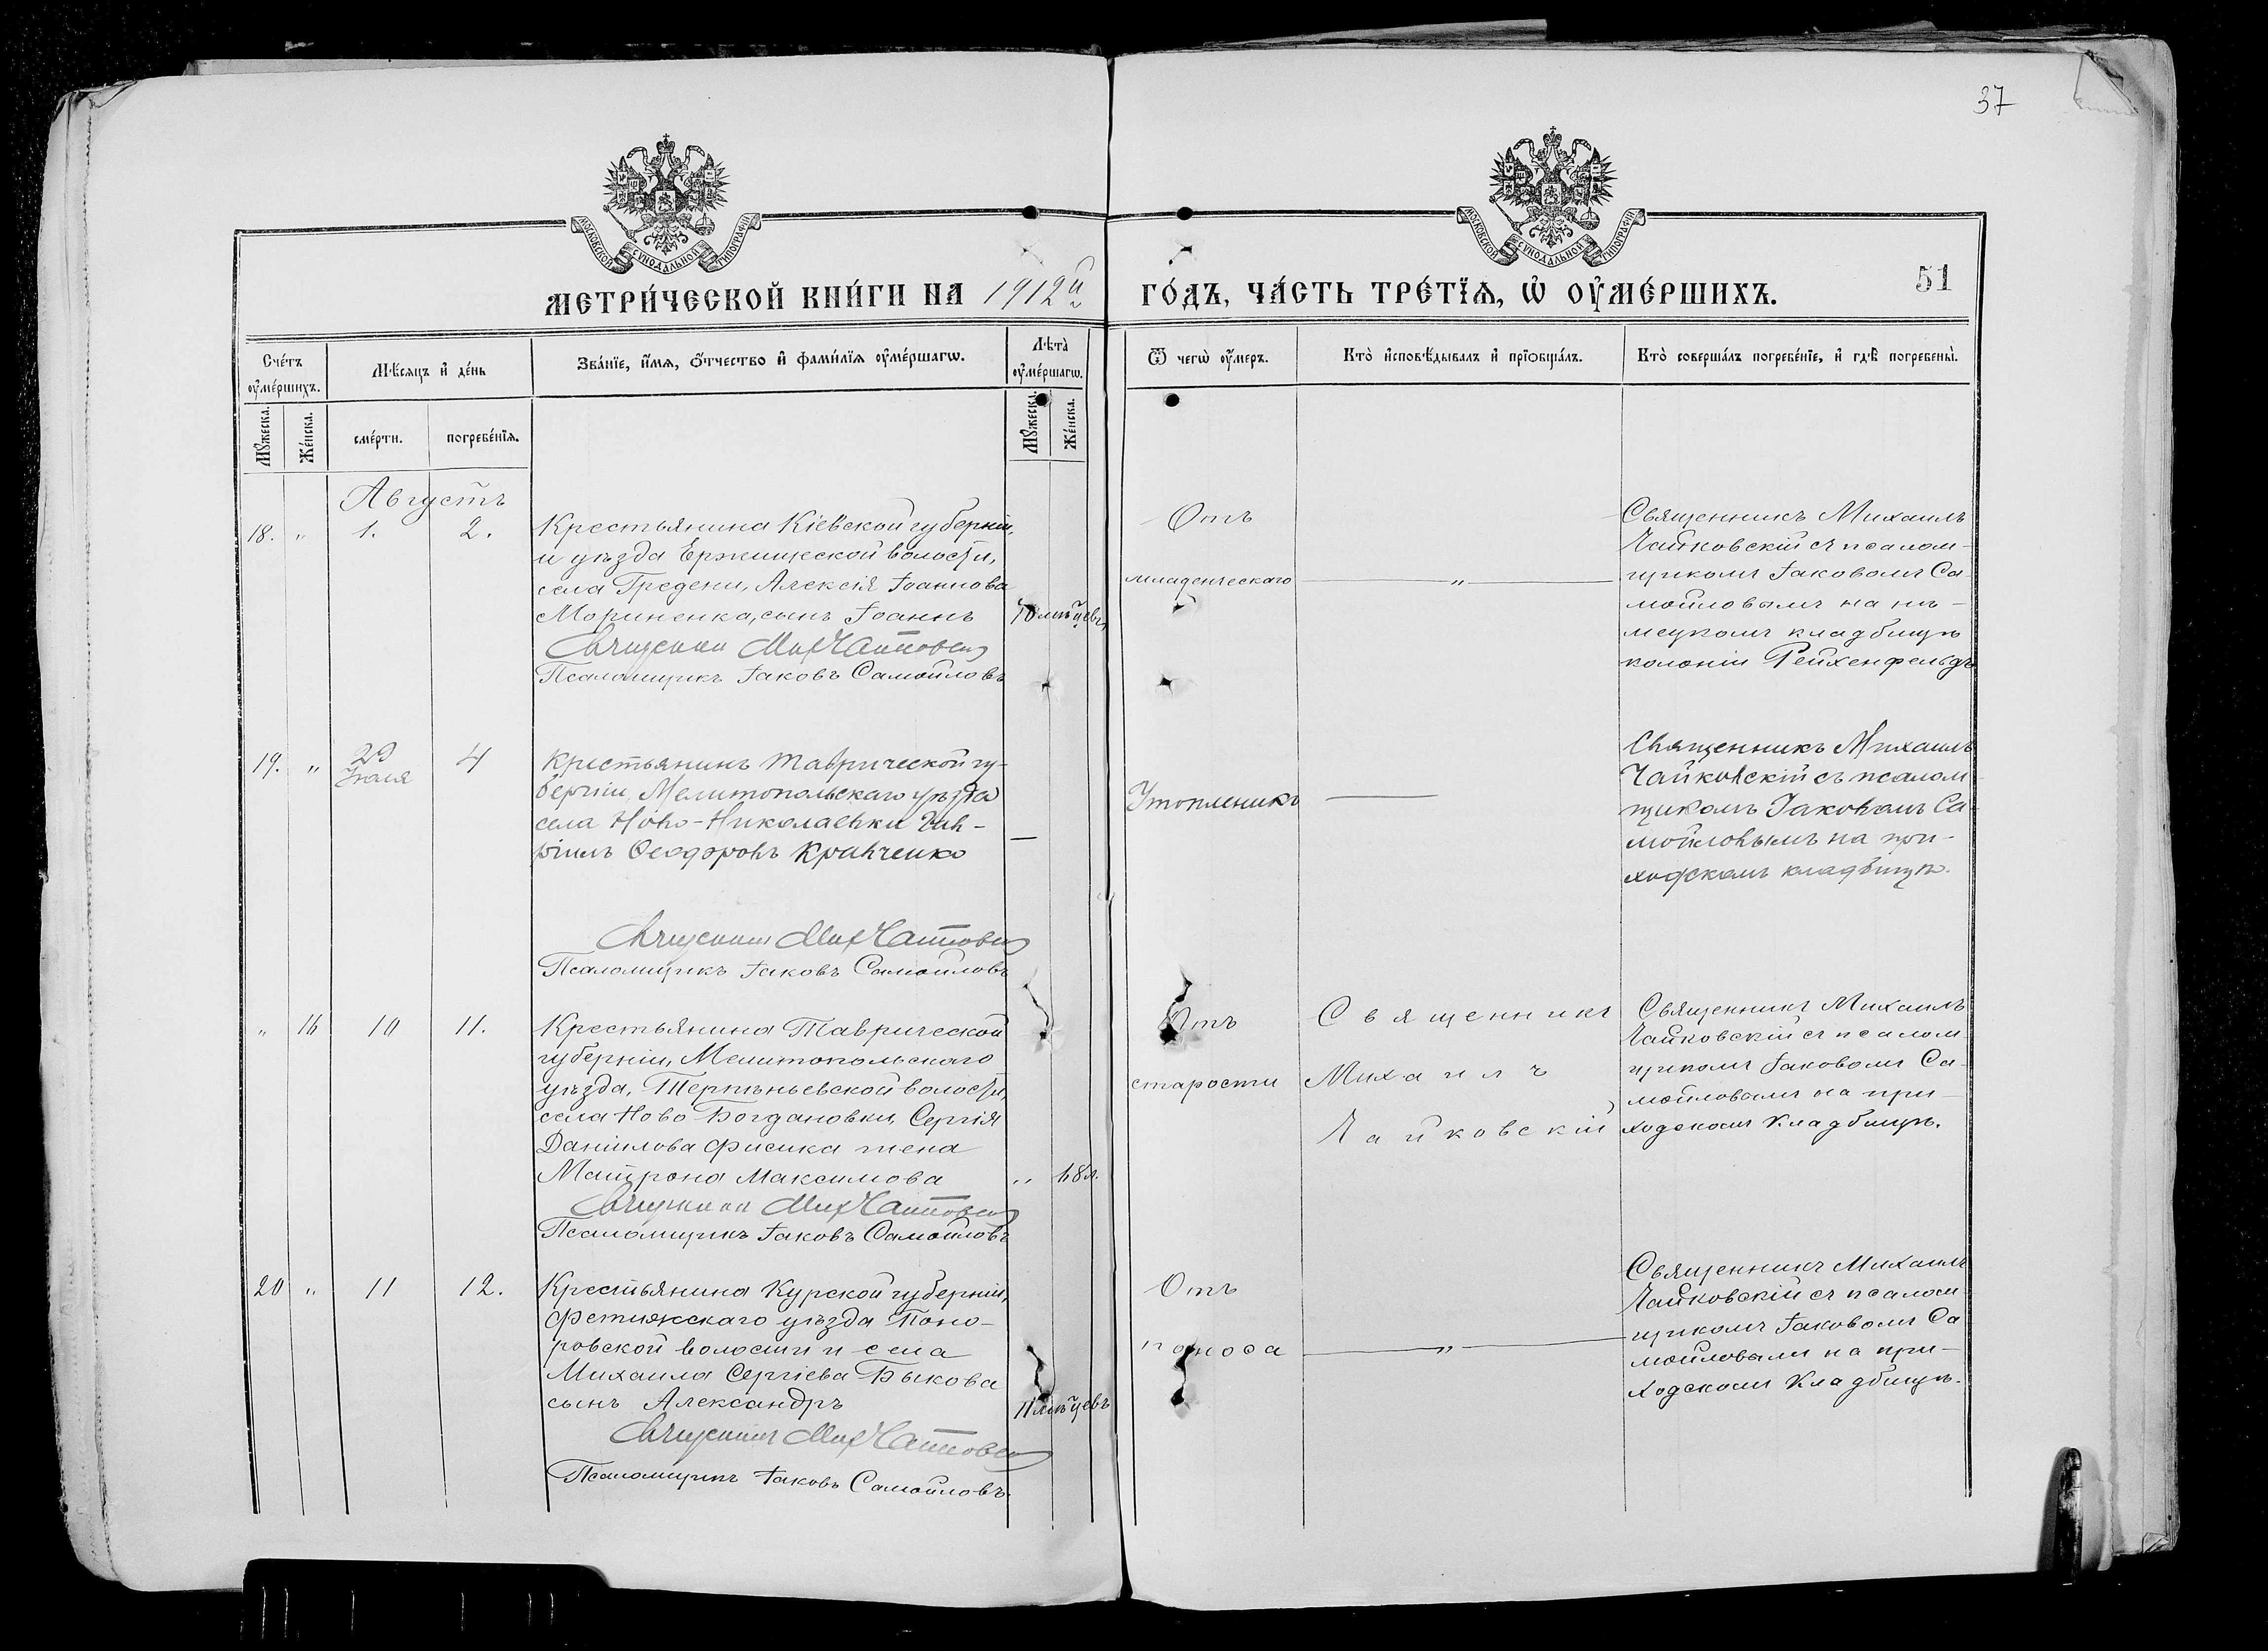 37
МОСКОВСКОЙ СѴНОДАЛЬНОЙ ТИПОГРАФІИ
МОСКОВСКОЙ СѴНОДАЛЬНОЙ ТИПОГРАФІИ
МЕТРИ́ЧЕСКОЙ КНИ́ГИ НА 1912й
ГО́ДЪ, ЧА́СТЬ ТРЕ́ТЇѦ, Ѡ҆ ОУ҆МЕ́РШИХЪ.
51
Сче́тъ оу҆ме́ршихъ.
Мѣ́сѧцъ и҆ де́нь
Зва́нїе, и҆́мѧ, ѻ҆́тчество и҆ фами́лїѧ оу҆ме́ршагѡ.
Лѣта̀ оу҆ме́ршагѡ.
Ѿ чегѡ̀ оу҆́меръ.
Кто̀ и҆сповѣ́дывалъ и҆ прїѡбща́лъ.
Кто̀ соверша́лъ погребе́нїе, и҆ гдѣ̀ погребены̀.
Мꙋ́жеска.
Же́нска.
сме́рти.
погребе́нїѧ.
Мꙋ́жеска.
Же́нска.
Августъ
18. „ 1. 2.
Крестьянина Кіевской губерніи,
и уѣзда Ержищеской волости,
села Гредени, Алексія Іоаннова
Мориненка, сынъ Іоаннъ
10 мѣсяцевъ
Священникъ Мих Чайковскій
Псаломщикъ Іаковъ Самойловъ
Отъ
младенческаго
„
Священникъ Михаилъ
Чайковскій съ псалом-
щикомъ Іаковомъ Са-
мойловымъ на нѣ-
мецкомъ кладбищѣ
колоніи Рейхенфельдъ
19. „ 29 Іюля 4
Крестьянинъ Таврической гу-
берніи Мелитопольскаго уѣзда
села Ново-Николаевки Гав-
ріилъ Ѳеодоровъ Кравченко
—
Священникъ Мих Чайковскій
Псаломщикъ Іаковъ Самойловъ
Утопленикъ
—
Священникъ Михаилъ
Чайковскій съ псалом
щикомъ Іаковомъ Са-
мойловымъ на при-
ходскомъ кладбищѣ.
„ 16 10 11.
Крестьянина Таврической
губерніи, Мелитопольскаго
уѣзда, Терпѣньевской волости,
села Ново Богдановки, Сергія
Даніилова Фисика жена
Матрона Максимова
„ 68 л.
Священникъ Мих Чайковскій
Псаломщикъ Іаковъ Самойловъ
Отъ
старости
Священникъ
Михаилъ
Чайковскій
Священникъ Михаилъ
Чайковскій съ псалом
щикомъ Іаковомъ Са-
мойловымъ на при-
ходскомъ кладбищѣ.
20 „ 11 12.
Крестьянина Курской губерніи,
Фетижскаго уѣзда Поны-
ровской волости и села
Михаила Сергіева Быкова
сынъ Александръ
11 мѣсяцевъ
Священникъ Мих Чайковскій
Псаломщикъ Іаковъ Самойловъ.
Отъ
поноса
„
Священникъ Михаилъ
Чайковскій съ псалом
щикомъ Іаковомъ Са
мойловымъ на при-
ходскомъ кладбищѣ.